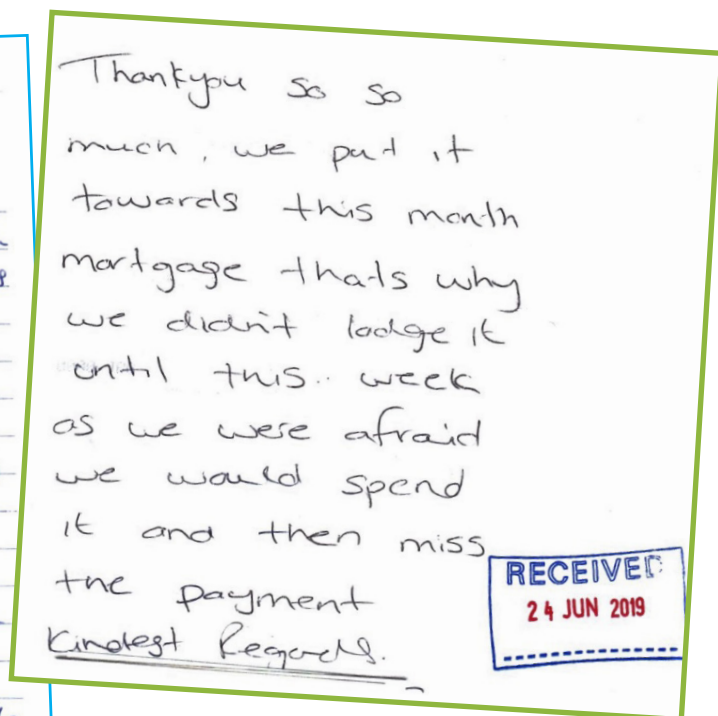 Thankyou so so
much, we put it
towards this month
mortgage thats why
we didn't lodge it
until this week
as we were afraid
we would spend
it and then miss
the payment
Kindest Regards.
RECEIVED
24 JUN 2019